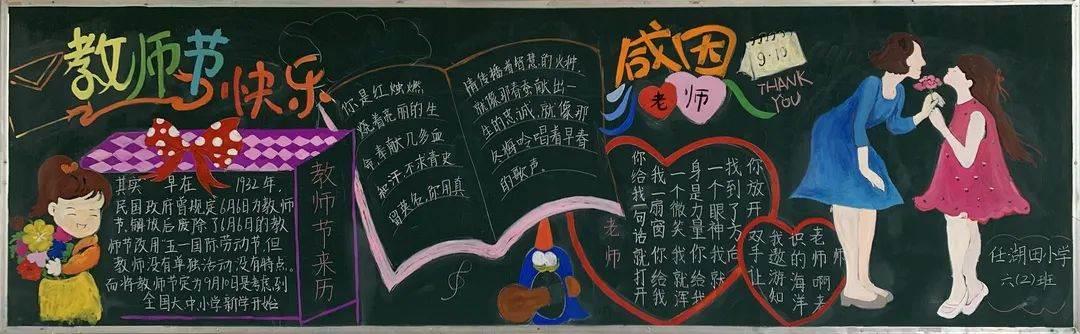 教师节
快乐
其实 早在 1932年,
民国政府曾规定6月6日为教师
节,解放后废除了6月6日的教
师节改用五一国际劳动节,但
教师没有单独活动,没有特点。
而将教师节定为9月10日是考虑到
全国大中小学新学开始
教师节来历
你是红烛燃
烧着亮丽的生
命,奉献几多血
和汗不求青史
留英名,你用真
情传播着智慧的火种.
就像那春蚕献出一
生的忠诚,就像那
冬梅吟唱着早春
的歌声.
感因
老师
9.10
THANK
YOU
老师
你放开
找到了方向
一个眼神我就
身是力量你给我
一个微笑我就浑
我一扇窗你给我
你给我一句话就打开
老师啊来
识的海洋
我遨游知
双手让
任湖田小学
六(2)班